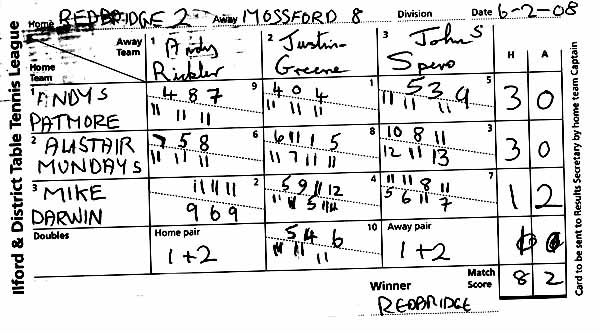 Ilford & District Table Tennis League
Home REDBRIDGE 2 Away MOSSFORD 8 Division Date 6-2-08
Away Team 1 Andy Rickler 2 Justin Greene 3 John S Spero H A
Home Team
1 ANDY S PATMORE 9 4 8 7 11 11 11 1 4 0 4 11 11 11 5 5 3 9 11 11 11 3 0
2 ALISTAIR MUNDAY S 6 7 5 8 11 11 11 8 6 11 1 5 11 7 11 11 3 10 8 11 12 11 13 3 0
3 MIKE DARWIN 2 11 11 11 9 6 9 4 5 9 11 12 7 11 11 8 11 5 6 11 7 1 2
Doubles Home pair 1+2 10 5 4 6 11 11 11 Away pair 1+2
Winner REDBRIDGE Match Score 8 2
Card to be sent to Results Secretary by home team Captain